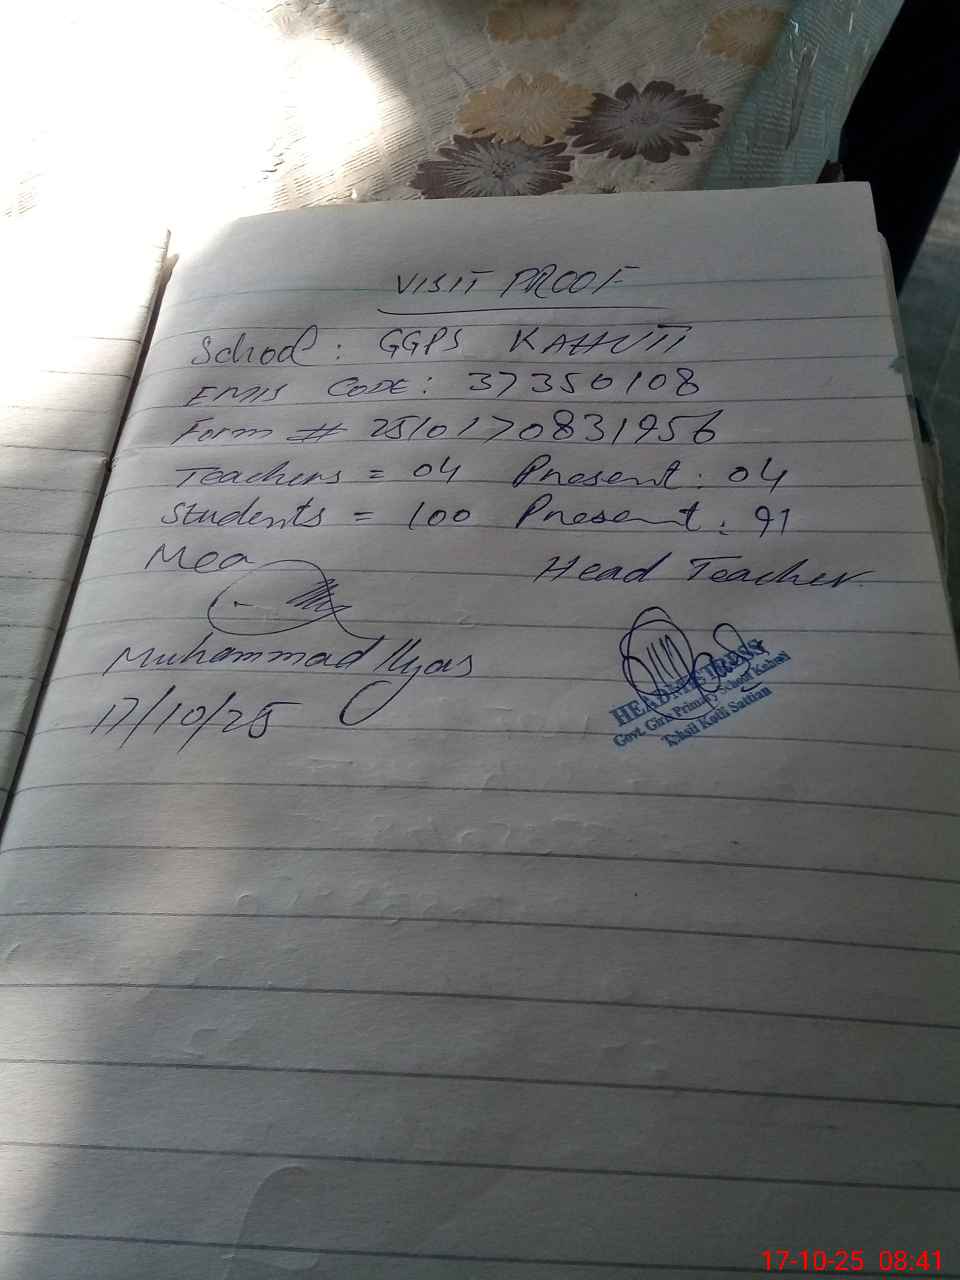 VISIT PROOF
School: GGPS KAHUTI
EMIS CODE: 37350108
Form # 2510170831956
Teachers = 04 Present: 04
Students = 100 Present: 91
Mea Head Teacher
Muhammad Ilyas
17/10/25
HEADMISTRESS
Govt. Girls Primary School
Tehsil Kotli Sattian
17-10-25 08:41